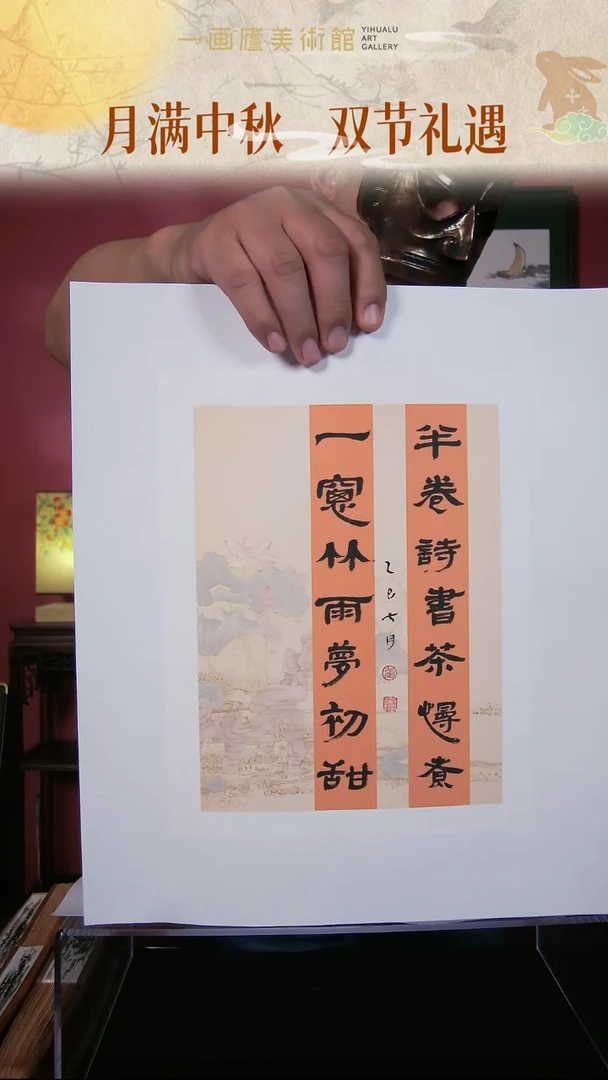 一画廬美術館
YIHUALU
ART
GALLERY
月满中秋 双节礼遇
半卷詩書茶慢煮
一窻竹雨夢初甜
乙巳七月